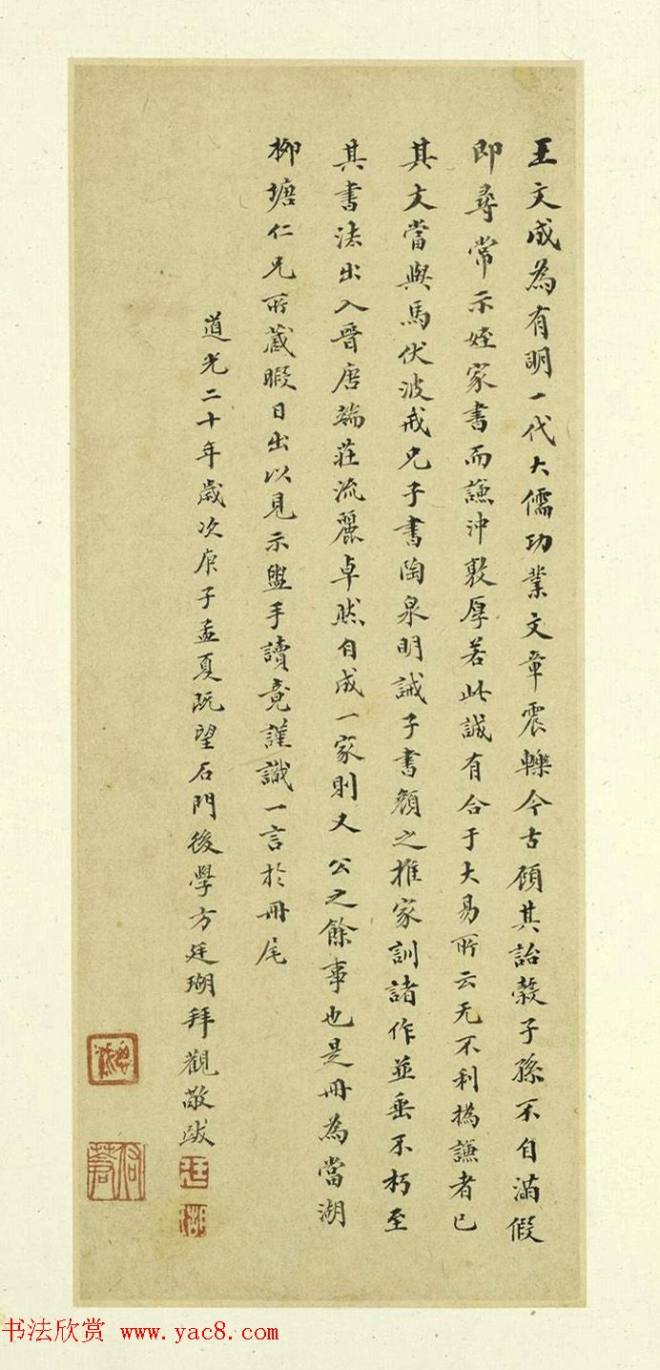 王文成為有明一代大儒功業文章震轢今古顧其詒穀子孫不自滿假
即尋常示姪家書而謙沖敦厚若此誠有合于大易所云无不利撝謙者已
其文當與馬伏波戒兄子書陶泉明誡子書顏之推家訓諸作並垂不朽至
其書法出入晉唐端莊流麗卓然自成一家則又公之餘事也是冊為當湖
柳塘仁兄所藏暇日出以見示盥手讀竟謹識一言於冊尾
道光二十年歲次庚子孟夏既望石門後學方廷瑚拜觀敬跋
廷瑚
书法欣赏 www.yac8.com